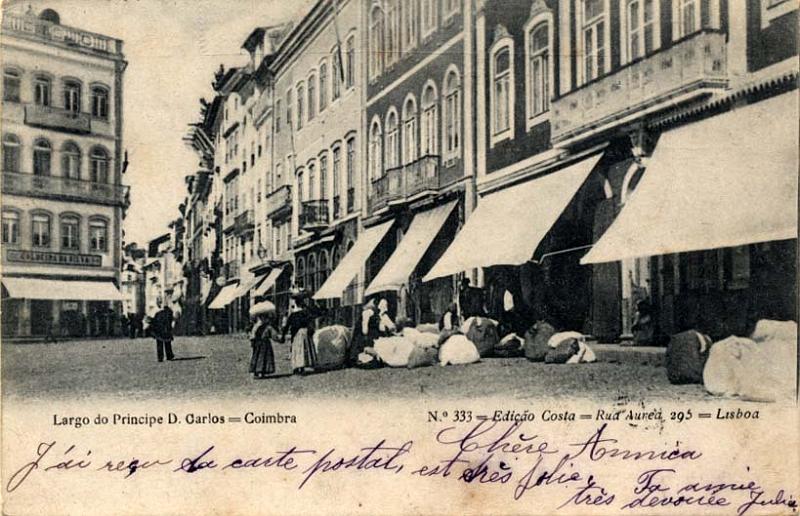 Largo do Principe D. Carlos = Coimbra
N.º 333 = Edição Costa = Rua Aurea 295 = Lisboa
Chère Annica
J'ai reçu ta carte postal, est très jolie,
Ta amie
très devouée Julia